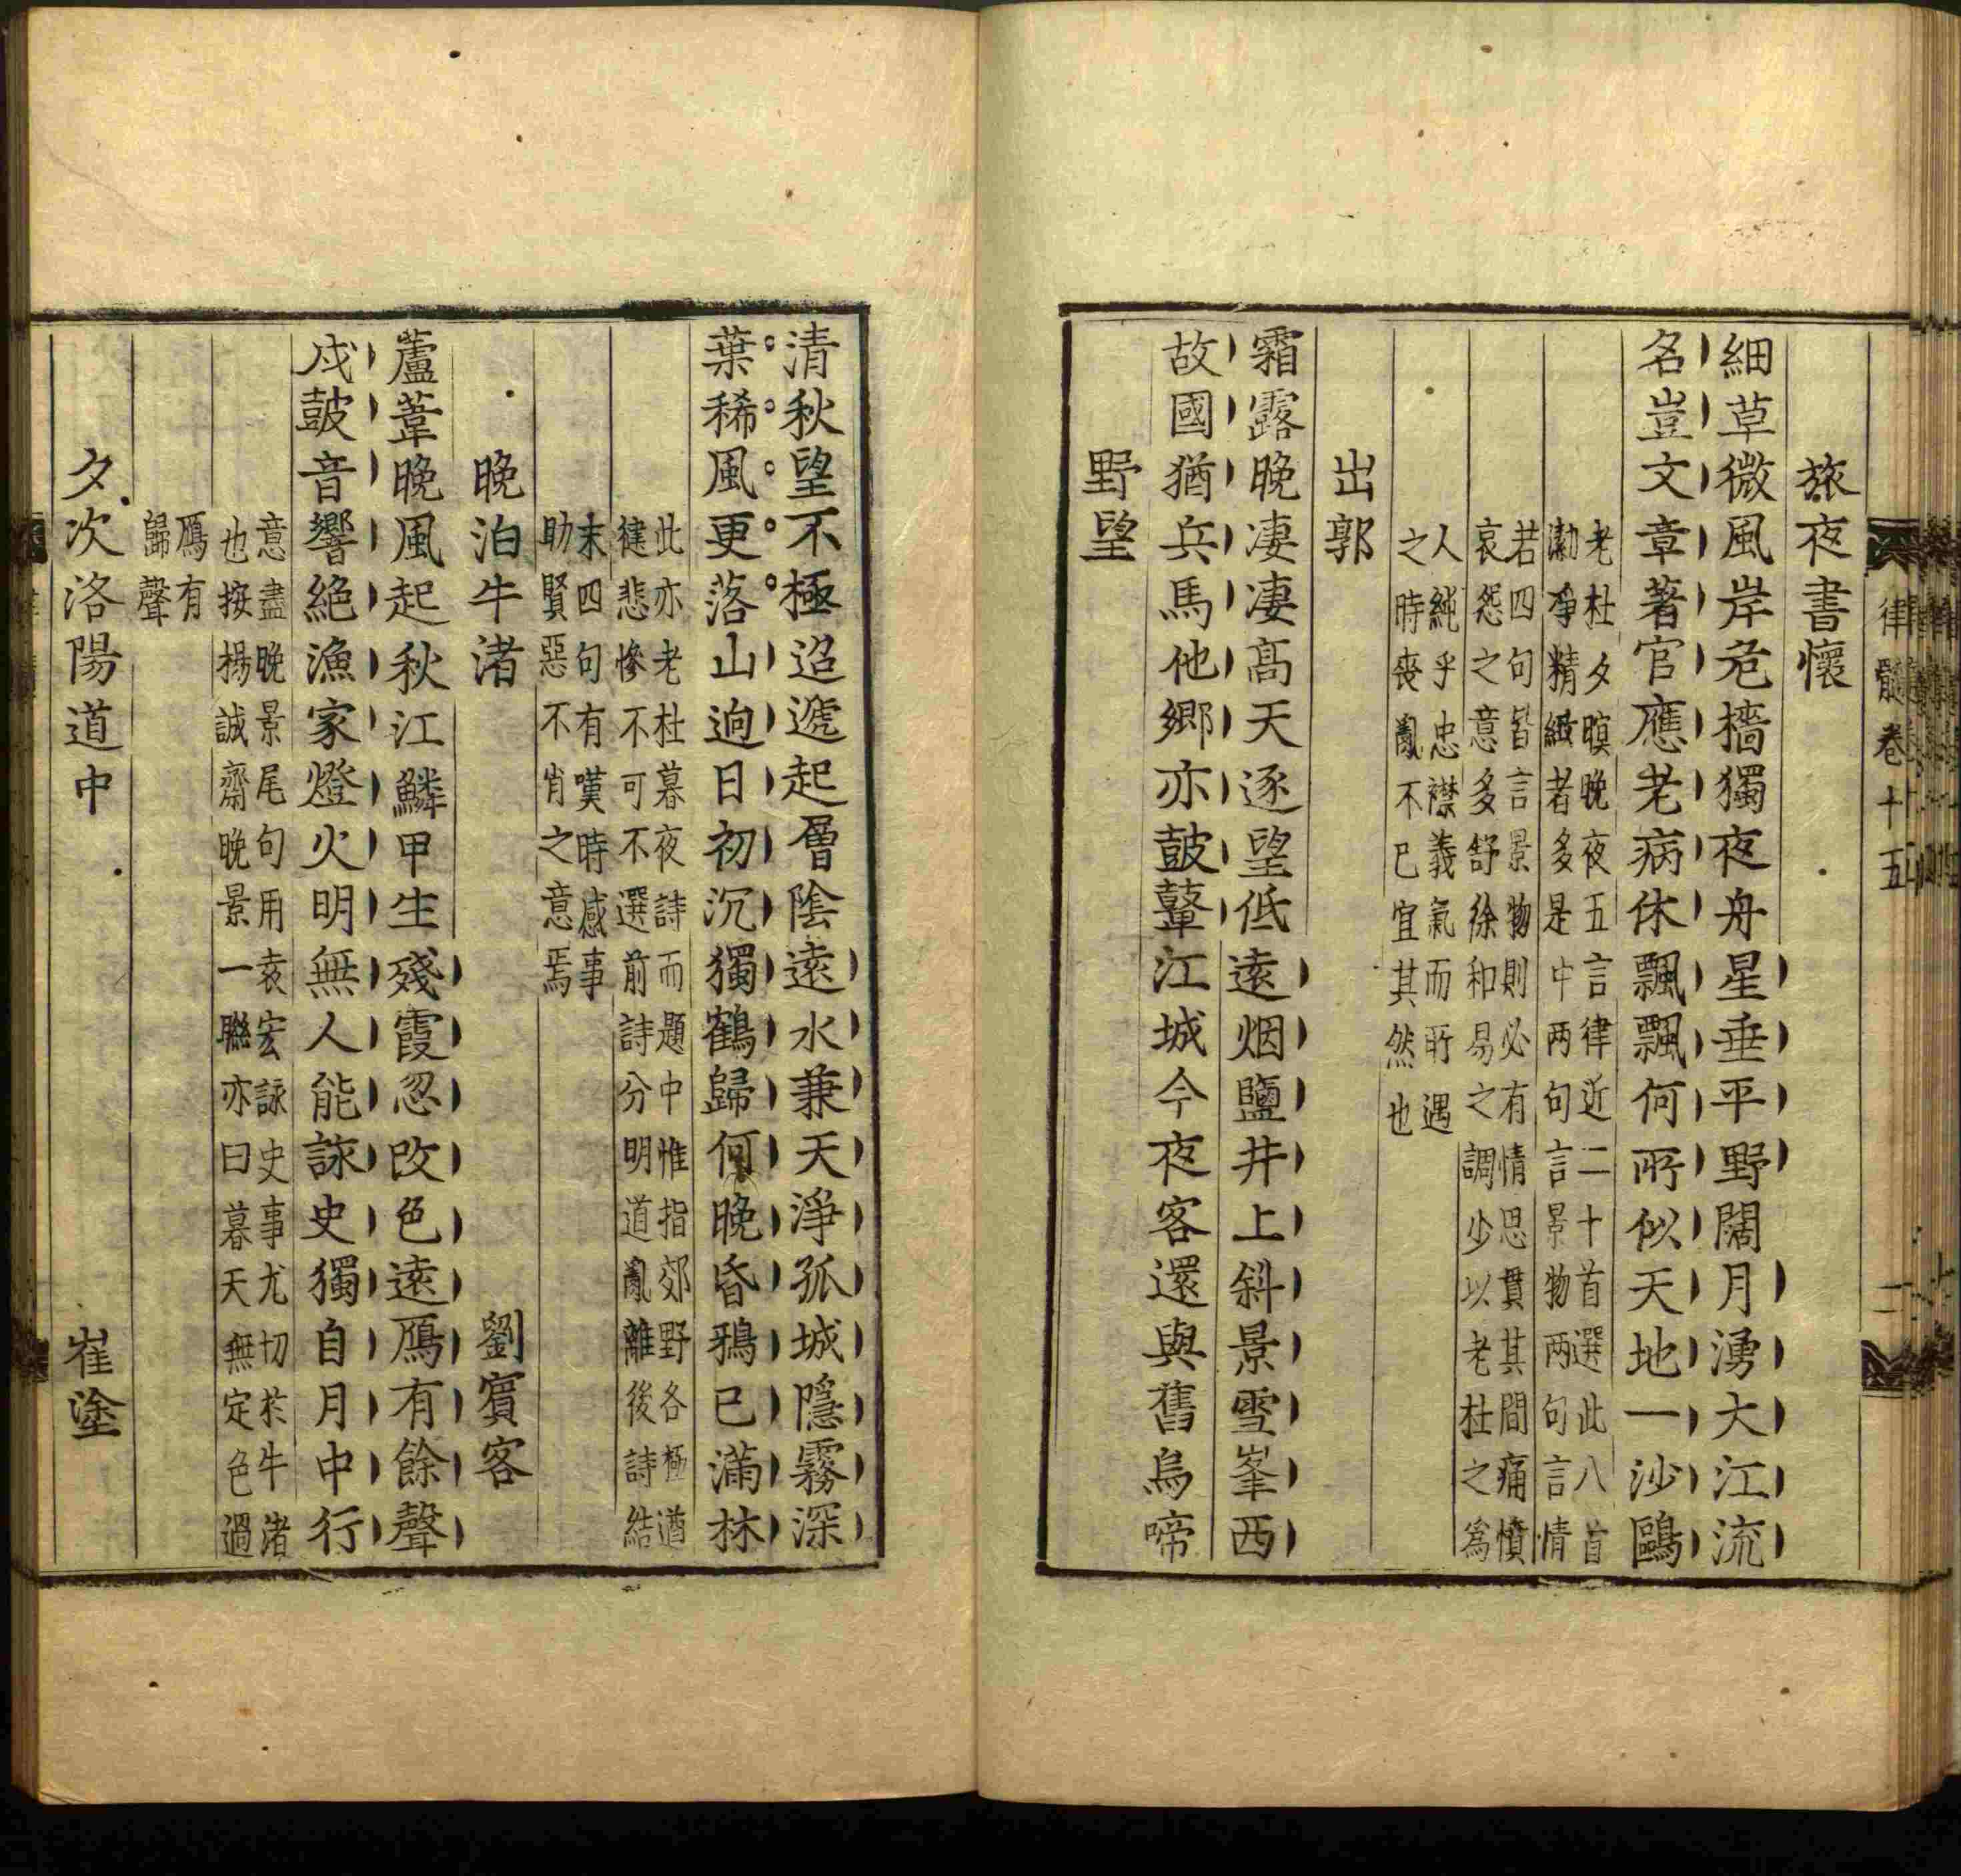 律髓卷十五
二
旅夜書懷
細草微風岸危檣獨夜舟星垂平野闊月湧大江流
名豈文章著官應老病休飄飄何所似天地一沙鷗
老杜夕暝晚夜五言律近二十首選此八首
瀏亮精緻者多是中两句言景物两句言情
若四句皆言景物則必有情思貫其間痛憤
哀怨之意多舒徐和易之調少以老杜之為
人純乎忠襟義氣而所遇
之時喪亂不已宜其然也
出郭
霜露晚凄凄髙天逐望低遠烟鹽井上斜景雪峯西
故國猶兵馬他鄉亦鼓鼙江城今夜客還與舊烏啼
野望
清秋望不極迢遞起層隂遠水兼天淨孤城隱霧深
葉稀風更落山逈日初沉獨鶴歸何晚昏鴉已滿林
此亦老杜暮夜詩而題中惟指郊野各極遒
健悲慘不可不選前詩分明道亂離後詩結
末四句有嘆時感事
助賢惡不肖之意焉
晚泊牛渚
劉賓客
蘆葦晚風起秋江鱗甲生殘霞忽改色遠鴈有餘聲
戍鼓音響絶漁家燈火明無人能詠史獨自月中行
意盡晚景尾句用袁宏詠史事尤切於牛渚
也按楊誠齋晚景一聯亦曰暮天無定色過
鴈有
歸聲
夕次洛陽道中
崔塗